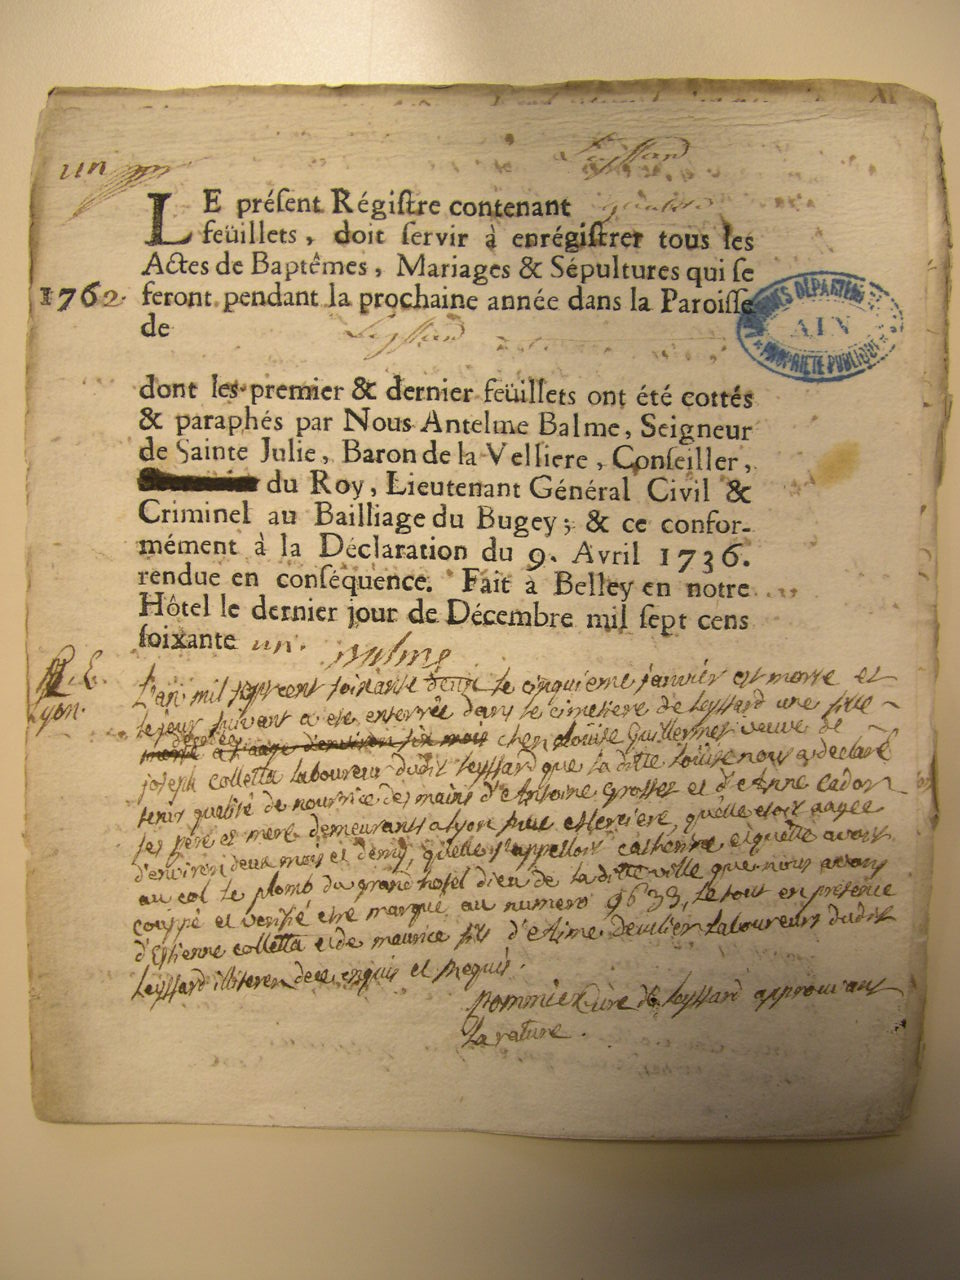 un
Leyssard
LE préſent Régiſtre contenant
feüillets, doit ſervir à enrégiſtrer tous les
Actes de Baptêmes, Mariages & Sépultures qui ſe
1762. feront pendant la prochaine année dans la Paroiſſe
de Leyssard
ARCHIVES DÉPARTEMENTALES
AIN
PROPRIÉTÉ PUBLIQUE
dont les premier & dernier feüillets ont été cottés
& paraphés par Nous Antelme Balme, Seigneur
de Sainte Julie, Baron de la Velliere, Conſeiller,
du Roy, Lieutenant Général Civil &
Criminel au Bailliage du Bugey; & ce confor-
mément à la Déclaration du 9. Avril 1736.
rendue en conſéquence. Fait à Belley en notre
Hôtel le dernier jour de Décembre mil ſept cens
ſoixante un.
Balme
Lyon.
L'an mil sept cent soixante deux le cinquieme janvier est morte et
le jour suivant a ete enterrée dans le cimetiere de leyssard une fille
decedée
agée d'environ six mois chez Louise Guillermet veuve de
joseph colletta laboureur dudit leyssard que la ditte Louise nous a declaré
tenir qualité de nourrice des mains d'Antoine Grosset et d'Anne Cadon
ses pere et mere demeurants a lyon qu'elle etoit aagée
d'environ deux mois et demy, qu'elle s'appelloit catherine et qu'elle avoit
au col le plomb du grand hotel dieu de la ditte ville que nous avons
couppé et verifié etre marqué au numero 9633, le tout en presence
d'Estienne colletta et de maurice fils d'Aime laboureurs dudit
leyssard illiteres de ce enquis et requis.
pommier Curé de leyssard approuvant
la rature.